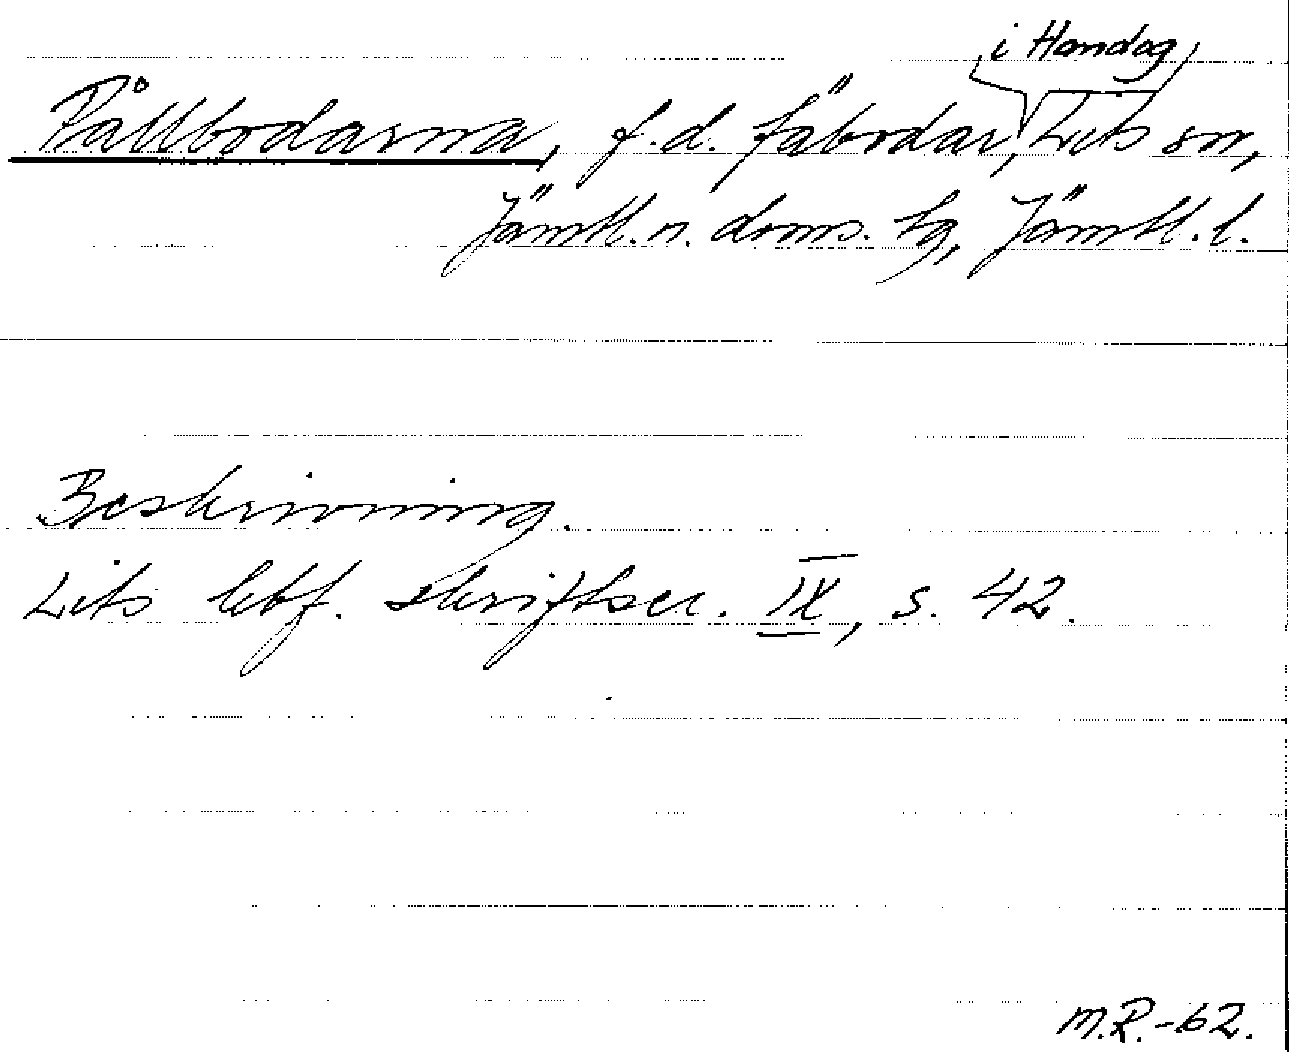 i Handog
Pållbodarna, f.d. fäbodar, Lits sn,
Jämtl. n. doms. tg, Jämtl. l.
Beskrivning.
Lits hbf. skriftser. IX, s. 42.
M.R.-62.